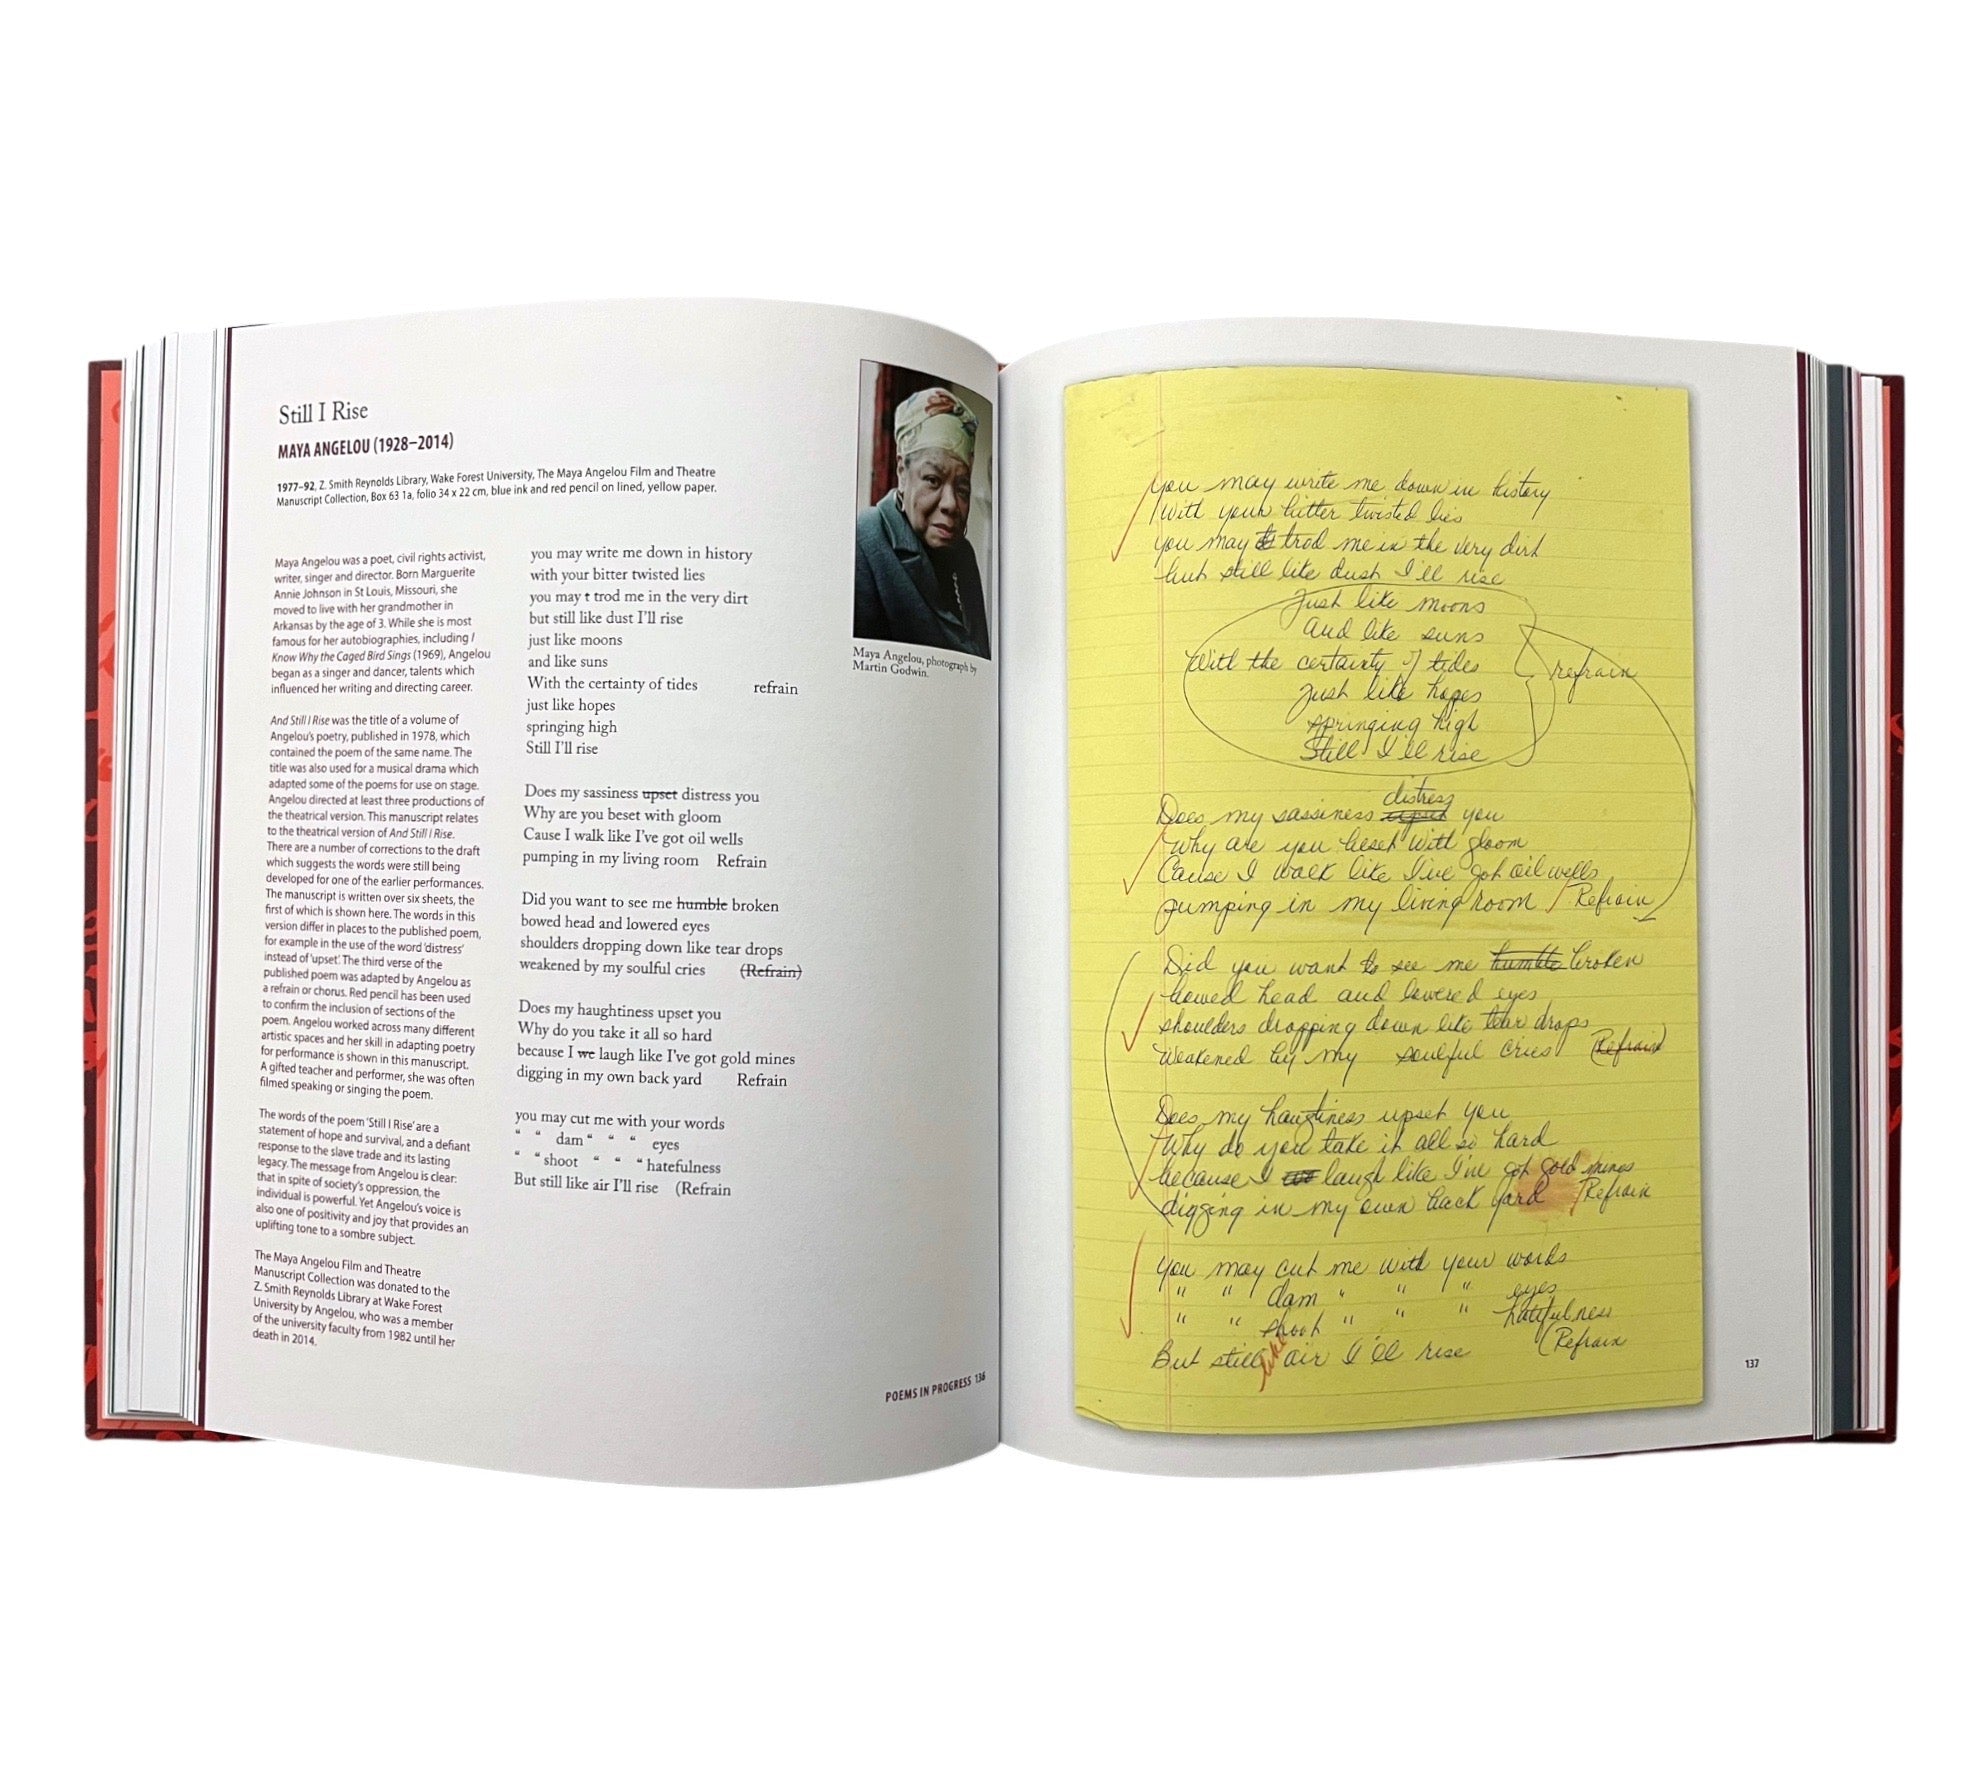 Still I Rise
MAYA ANGELOU (1928–2014)
1977–92, Z. Smith Reynolds Library, Wake Forest University, The Maya Angelou Film and Theatre
Manuscript Collection, Box 63 1a, folio 34 x 22 cm, blue ink and red pencil on lined, yellow paper.
Maya Angelou was a poet, civil rights activist,
writer, singer and director. Born Marguerite
Annie Johnson in St Louis, Missouri, she
moved to live with her grandmother in
Arkansas by the age of 3. While she is most
famous for her autobiographies, including I
Know Why the Caged Bird Sings (1969), Angelou
began as a singer and dancer, talents which
influenced her writing and directing career.
And Still I Rise was the title of a volume of
Angelou's poetry, published in 1978, which
contained the poem of the same name. The
title was also used for a musical drama which
adapted some of the poems for use on stage.
Angelou directed at least three productions of
the theatrical version. This manuscript relates
to the theatrical version of And Still I Rise.
There are a number of corrections to the draft
which suggests the words were still being
developed for one of the earlier performances.
The manuscript is written over six sheets, the
first of which is shown here. The words in this
version differ in places to the published poem,
for example in the use of the word 'distress'
instead of 'upset'. The third verse of the
published poem was adapted by Angelou as
a refrain or chorus. Red pencil has been used
to confirm the inclusion of sections of the
poem. Angelou worked across many different
artistic spaces and her skill in adapting poetry
for performance is shown in this manuscript.
A gifted teacher and performer, she was often
filmed speaking or singing the poem.
The words of the poem 'Still I Rise' are a
statement of hope and survival, and a defiant
response to the slave trade and its lasting
legacy. The message from Angelou is clear:
that in spite of society's oppression, the
individual is powerful. Yet Angelou's voice is
also one of positivity and joy that provides an
uplifting tone to a sombre subject.
The Maya Angelou Film and Theatre
Manuscript Collection was donated to the
Z. Smith Reynolds Library at Wake Forest
University by Angelou, who was a member
of the university faculty from 1982 until her
death in 2014.
you may write me down in history
with your bitter twisted lies
you may t trod me in the very dirt
but still like dust I'll rise
just like moons
and like suns
With the certainty of tides refrain
just like hopes
springing high
Still I'll rise
Does my sassiness upset distress you
Why are you beset with gloom
Cause I walk like I've got oil wells
pumping in my living room Refrain
Did you want to see me humble broken
bowed head and lowered eyes
shoulders dropping down like tear drops
weakened by my soulful cries (Refrain)
Does my haughtiness upset you
Why do you take it all so hard
because I we laugh like I've got gold mines
digging in my own back yard Refrain
you may cut me with your words
“ “ dam “ “ “ eyes
“ “ shoot “ “ “ hatefulness
But still like air I'll rise (Refrain
Maya Angelou, photograph by
Martin Godwin.
POEMS IN PROGRESS 136
You may write me down in history
With your bitter twisted lies
you may trod me in the very dirt
but still like dust I'll rise
Just like moons
And like suns
With the certainty of tides refrain
Just like hopes
springing high
Still I'll rise
distress
Does my sassiness upset you
Why are you beset with gloom
Cause I walk like I've got oil wells
pumping in my living room / Refrain
Did you want to see me humble broken
bowed head and lowered eyes
shoulders dropping down like tear drops
Weakened by my soulful cries (Refrain)
Does my haughtiness upset you
Why do you take it all so hard
because I we laugh like I've got gold mines
digging in my own back yard / Refrain
You may cut me with your words
" " dam " " " eyes
" " shoot " " " hatefulness
(Refrain
But still like air I'll rise
137